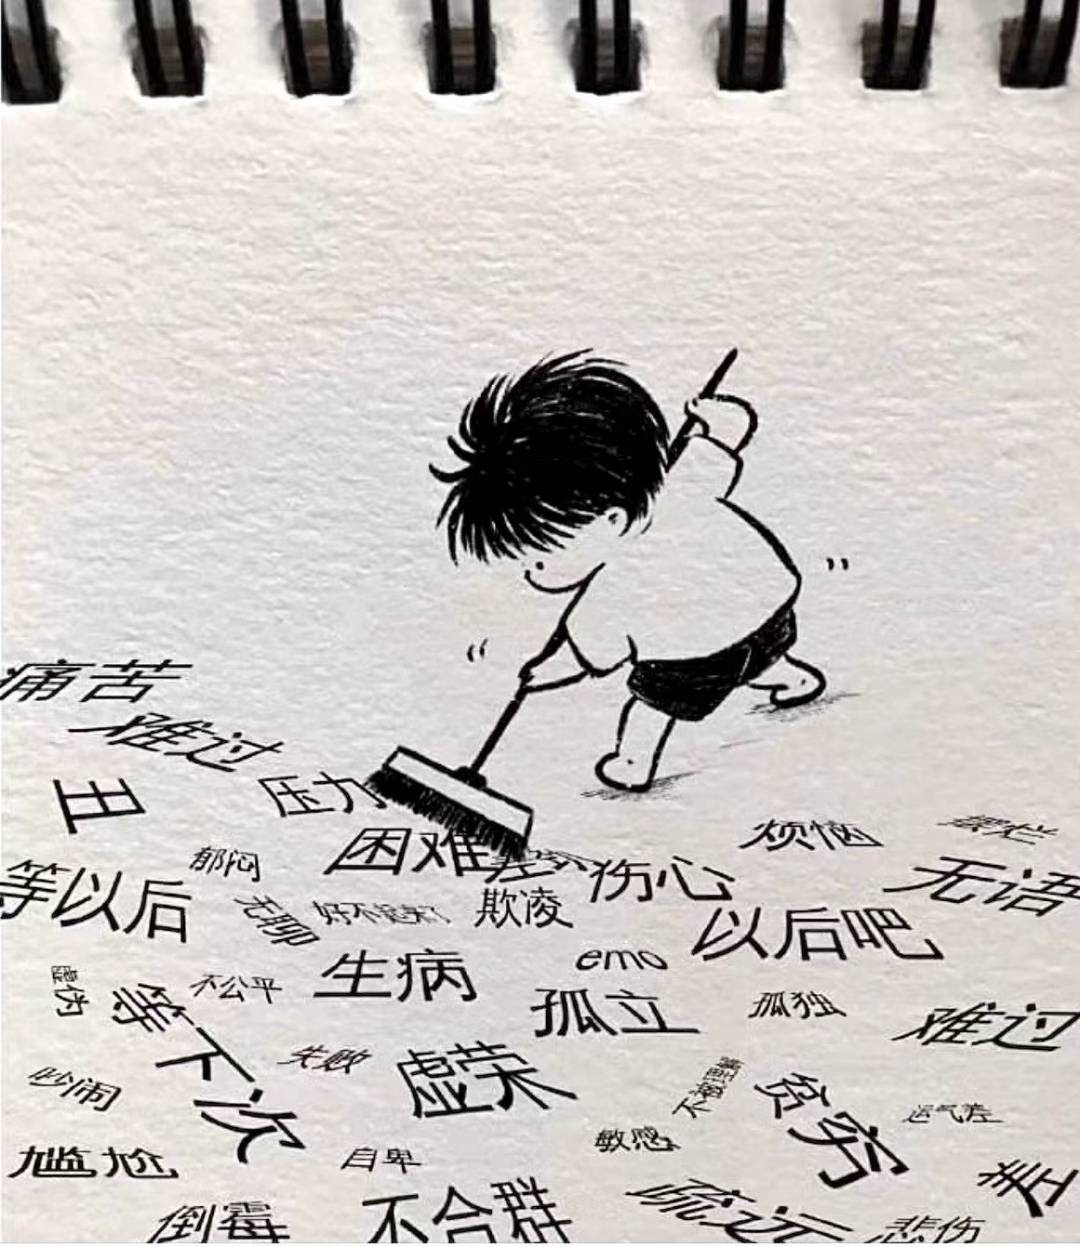 痛苦
难过
丑
压力
困难
烦恼
摆烂
郁闷
等以后
伤心
无语
无聊
好不起来了
欺凌
以后吧
生病
emo
虚伪
不公平
等下次
孤立
孤独
难过
失败
虚荣
吵闹
贫穷
运气差
敏感
尴尬
自卑
差
倒霉
不合群
疏远
悲伤